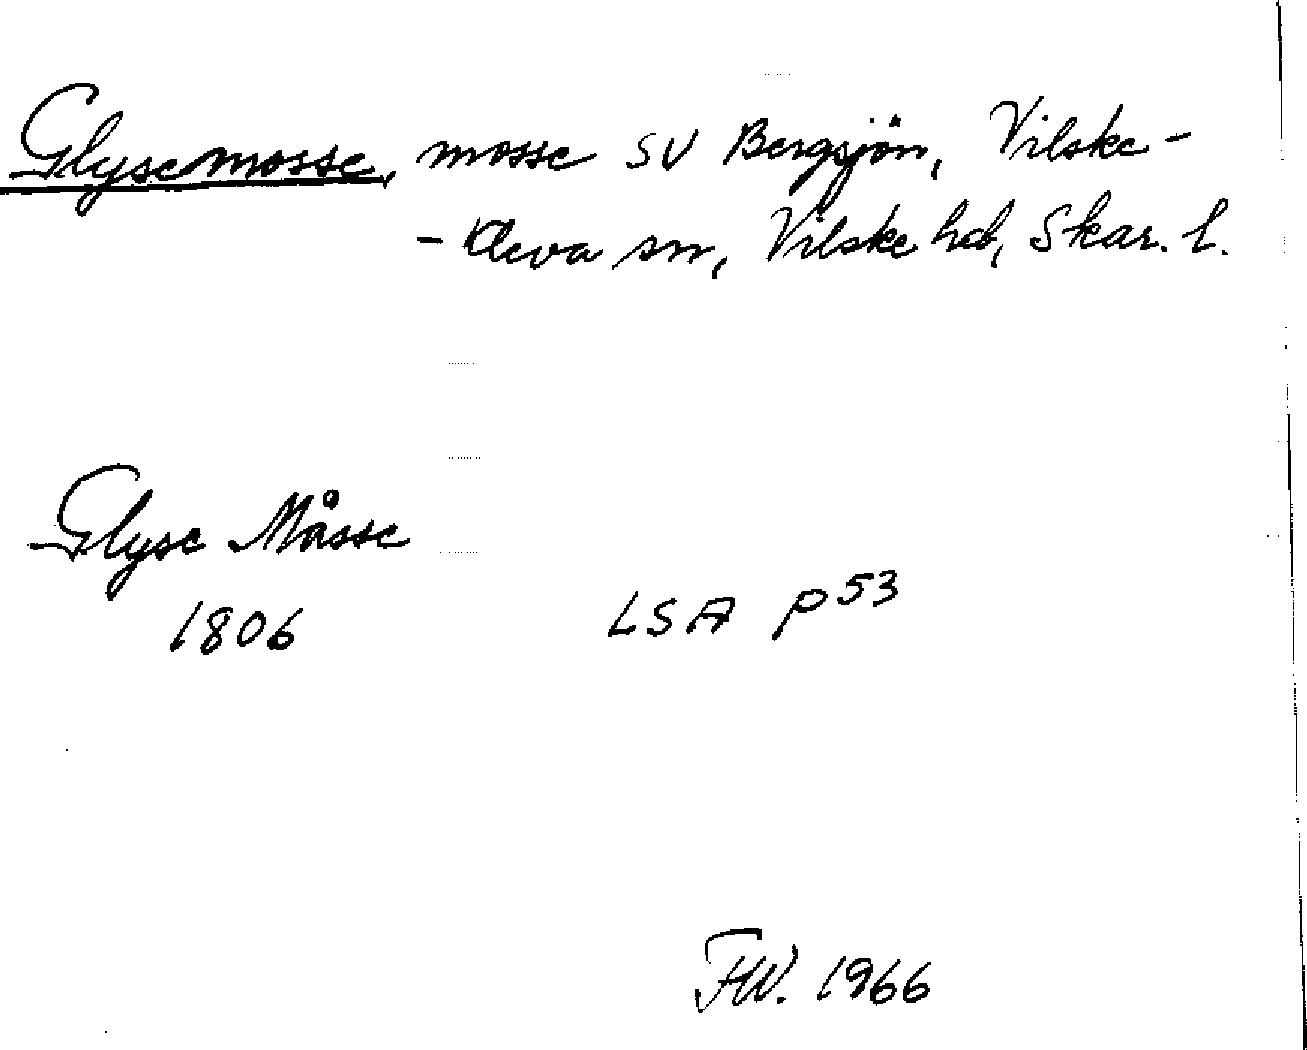 Glysemosse, mosse SV Bergsjön, Vilske-
-Kleva sn, Vilske hd, Skar. l.
Glyse Måsse
1806 LSA P53
FW. 1966